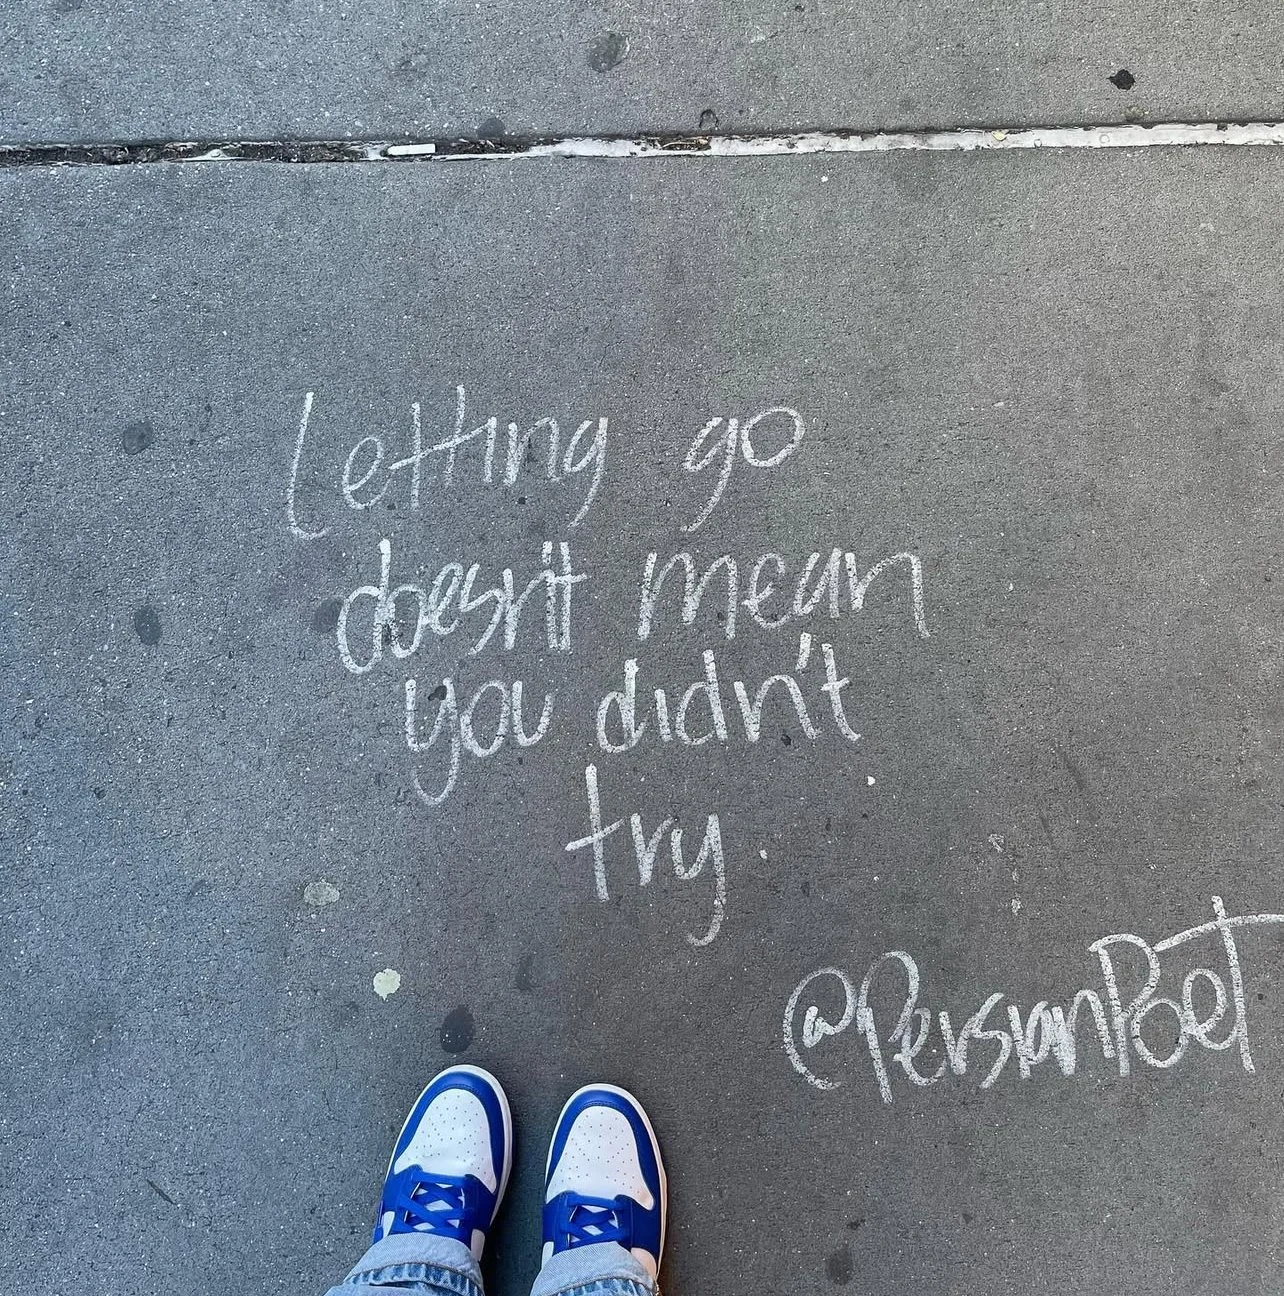 Letting go
doesn't mean
you didn't
try.
@PersianPoet